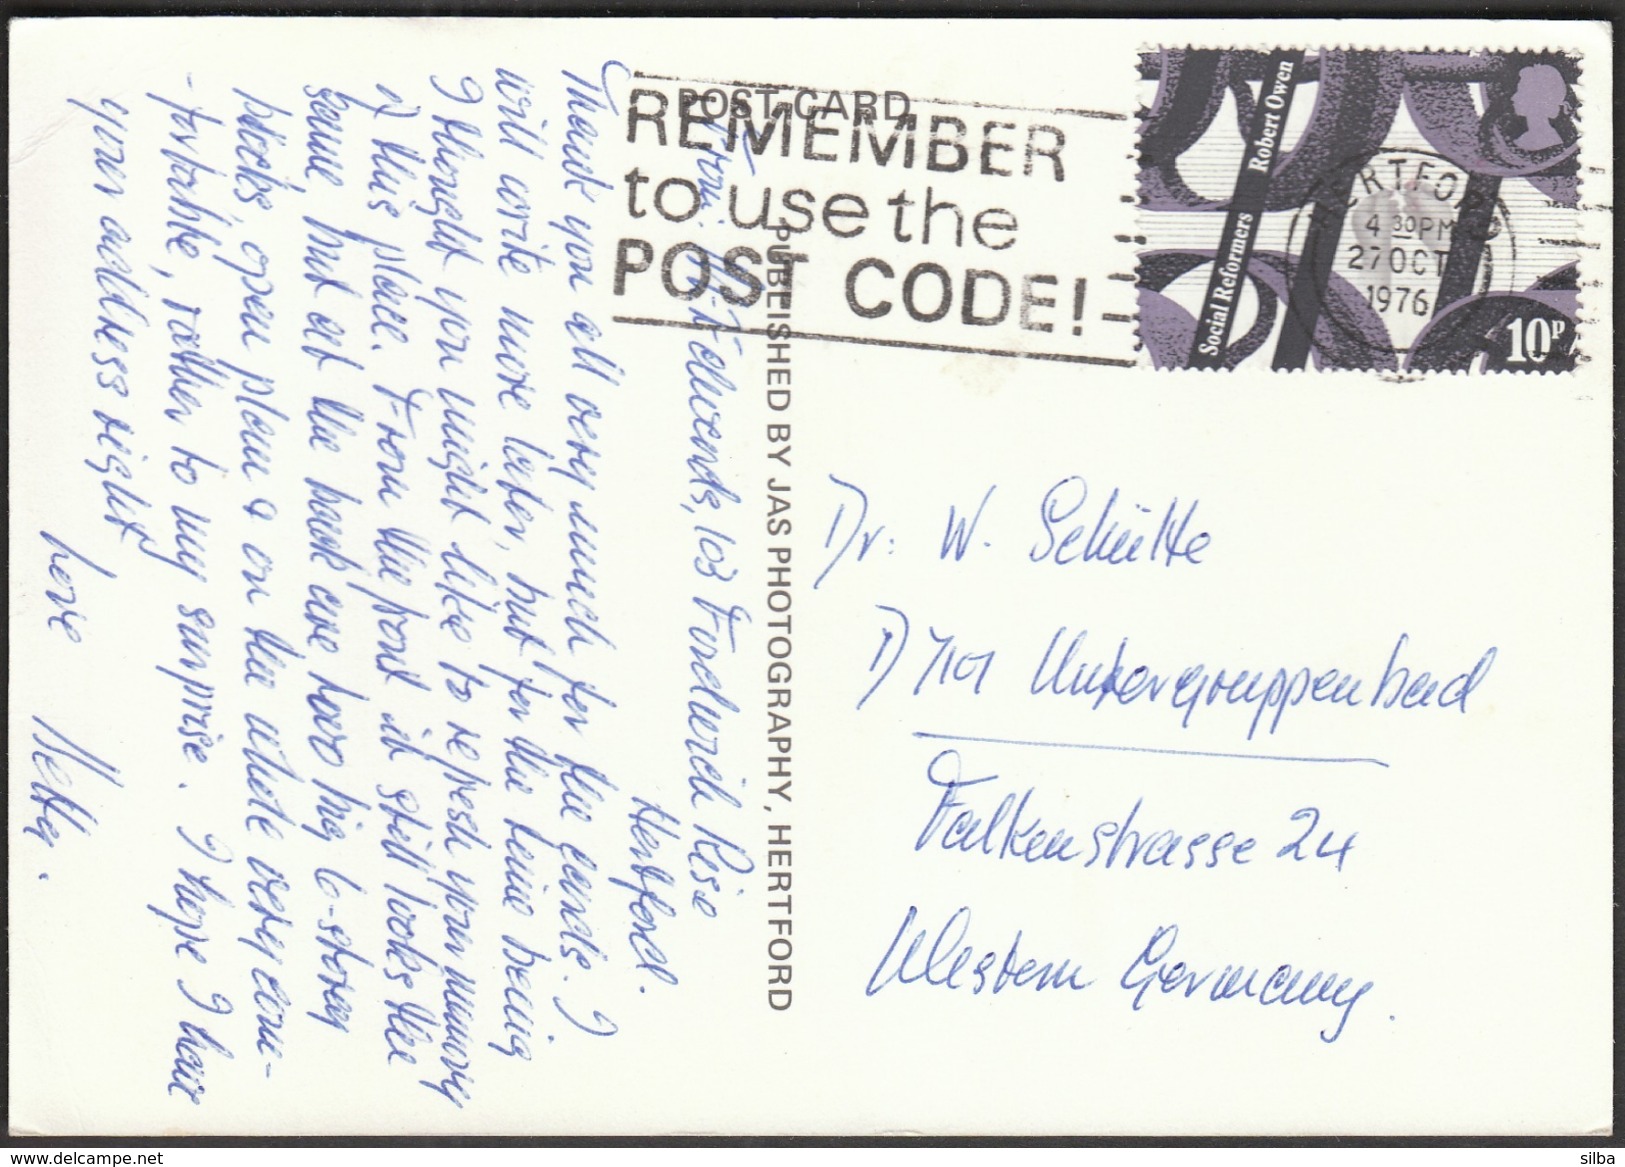 POST CARD
REMEMBER
to use the
POST CODE!
Social Reformers Robert Owen
10P
HERTFORD
4 30 PM
27 OCT
1976
PUBLISHED BY JAS PHOTOGRAPHY, HERTFORD
From: H. Edwards, 103
Rise
Hertford.
Thank you all very much for the cards. I
will write more later, but for the time being
I thought you might like to refresh your memory
of this place. From the front it still looks the
same, but at the back are two big 6-storey
blocks, open plan & on the whole very com-
-fortable, rather to my surprise. I hope I have
your address right!
Love Hetty.
Dr. W. Schütte
D 7101 Untergruppenbach
Falkenstrasse 24
Western Germany.
silba
www.delcampe.net